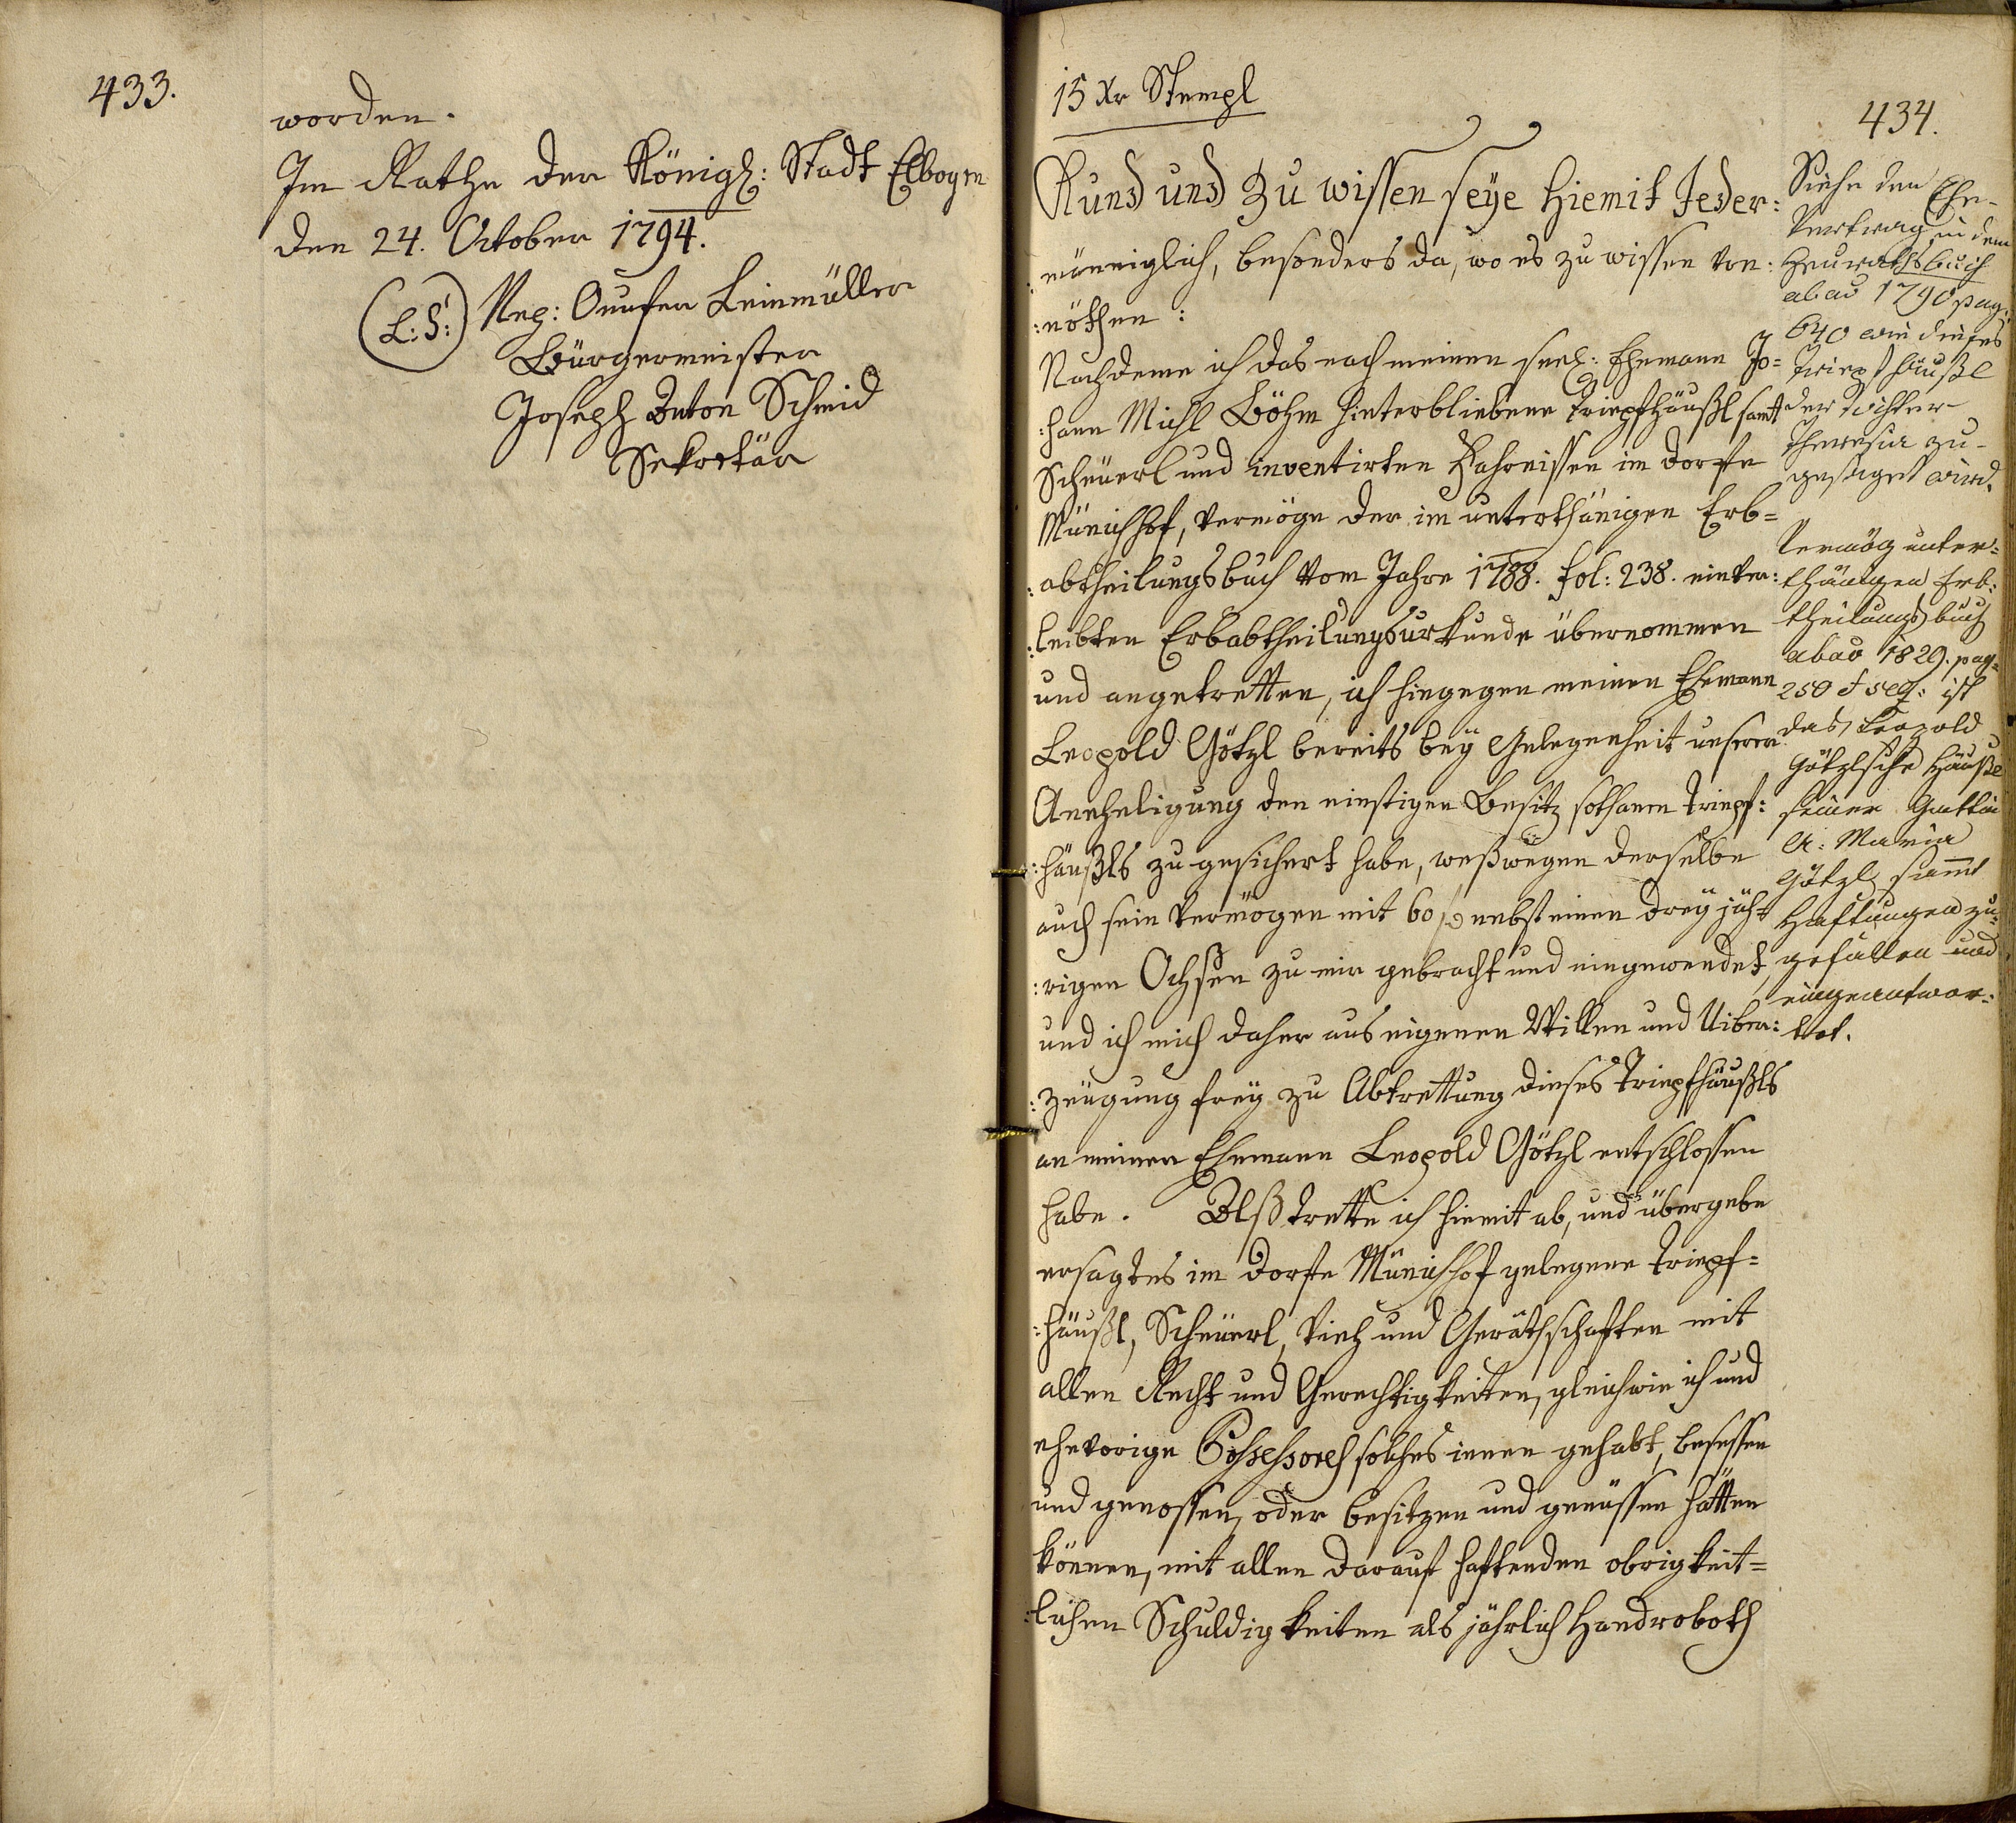 433.
worden.
Im Rathe der Königl: Stadt Elbogen
den 24. October 1794.
(L: S:) Nep: Leinmüller
Bürgermeister
Joseph Anton Schmid
Sekretär
15 Xr Stempl
434.
Kund und Zu wissen seye hiemit Jeder:
:mäniglich, besonders da, wo es zu wissen von:
:nöthen:
Nachdeme ich das nach meinen seel: Ehemann Jo=
:hann Michl Böhm hinterbliebene Triepfhäußl samt
Scheuerl und inventirten Fahrnissen im Dorfe
Münichhof, vermöge der im unterthänigen Erb=
:abtheilungsbuch vom Jahre 1788. fol: 238. einver:
:leibten Erbabtheilungsurkunde übernommen
und angetretten, ich hingegen meinen Ehemann
Leopold Götzl bereits bey Gelegenheit unserer
Aneheligung den einstigen Besitz sothanen Triepf:
:häußls zu gesichert habe, weßwegen derselbe
auch sein Vermögen mit 60 f nebst einen drey jäh=
:rigen Ochsen zu mir gebracht und eingewendet,
und ich mich daher aus eigenen Willen und Uiber:
:zeugung frey zu Abtrettung dieses Triepfhäußls
an meinen Ehemann Leopold Götzl entschlossen
habe. Alß trette ich hiemit ab, und übergebe
ersagtes im Dorfe Münichhof gelegene Triepf=
:häußl, Scheuerl, Vieh und Geräthschaften mit
allen Recht und Gerechtigkeiten, gleichwie ich und
ehevorige Possessores solches innen gehabt, besessen
und genossen, oder besitzen und genüssen hätten
können, mit allen darauf haftenden obrigkeit=
:lichen Schuldigkeiten als jährlich Handroboth
Siehe den Ehe-
Vertrag in dem
Heurathsbuch
abao 1790 pag:
640 wie dieses
Triepfhäußl
der Tochter
Theresia zu-
gesaget wird.
Vermög unter=
thänigen Erb:
theilungsbuch
abao 1829. pag=
250 et seq: ist
das Leopold
Götzlsche Häußl
seiner Gattin
A: Maria
Götzl sammt
Haftungen zu:
gefallen und
eingeantwor:
tet.